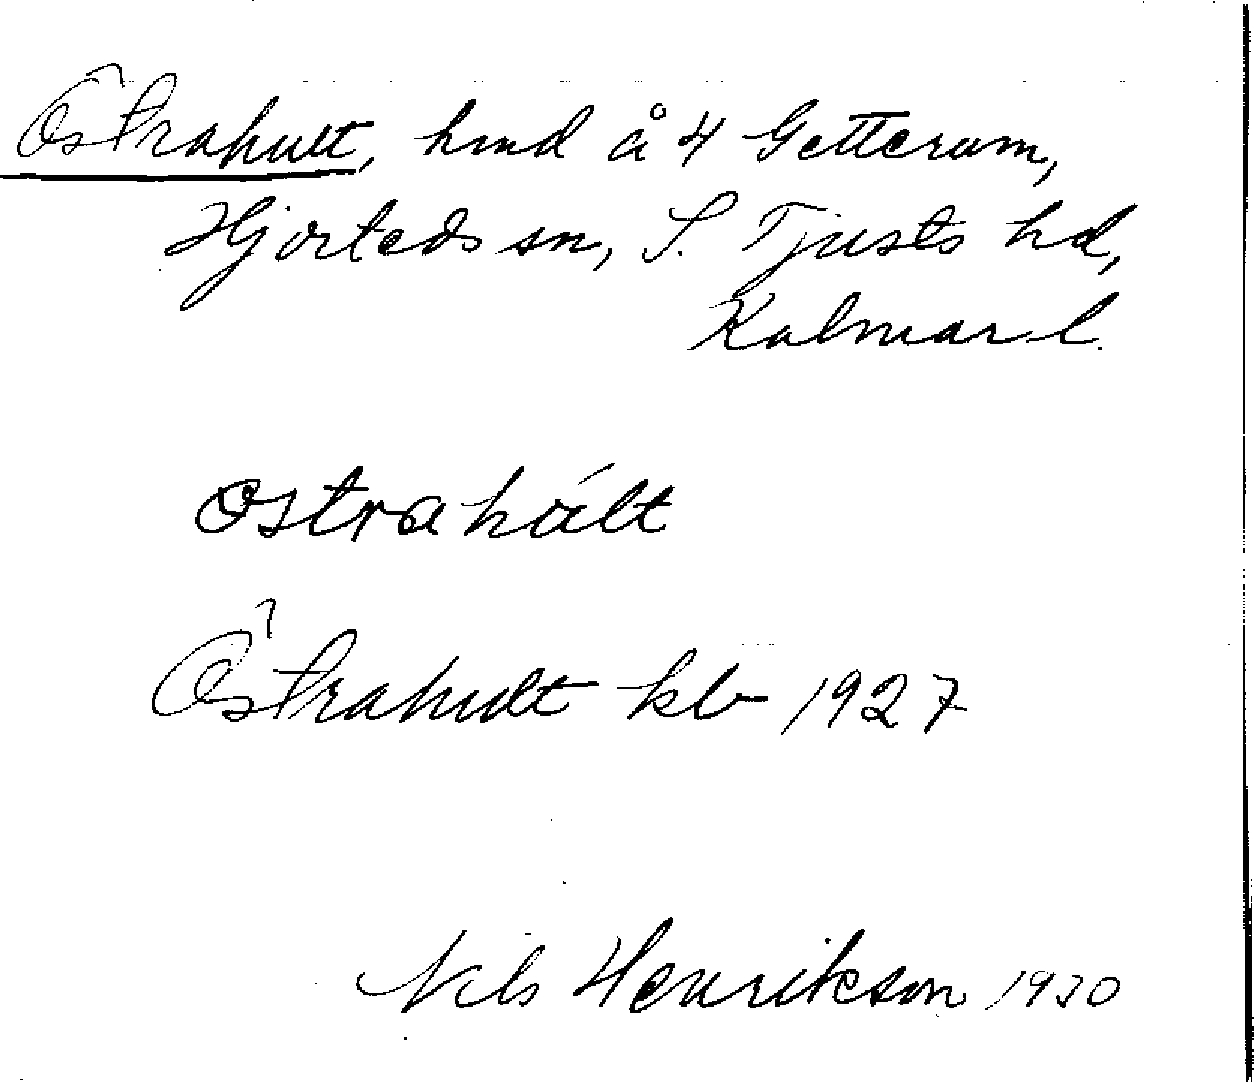 Östrahult, hmd å 4 Getterum,
Hjorteds sn, S. Tjusts hd,
Kalmar l.
østrahált
Östrahult kb 1927
Nils Henrikson 1930